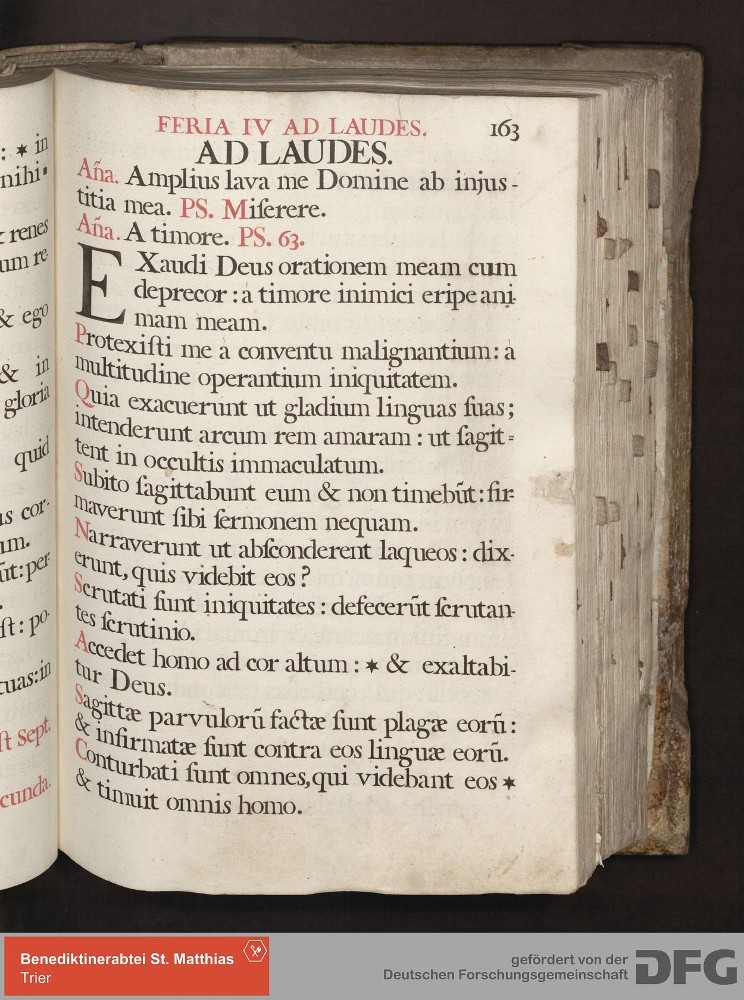 : ✶ in
nihi▪
renes
um re
& ego
& in
gloria
quid
us cor-
um.
ūt: per-
st: po-
tuas: in
ſt Sept.
cunda.
FERIA IV AD LAUDES. 163
AD LAUDES.
Aña. Amplius lava me Domine ab injus-
titia mea. PS. Miſerere.
Aña. A timore. PS. 63.
EXaudi Deus orationem meam cum
deprecor : a timore inimici eripe ani-
mam meam.
Protexiſti me a conventu malignantium: a
multitudine operantium iniquitatem.
Quia exacuerunt ut gladium linguas ſuas ;
intenderunt arcum rem amaram : ut ſagit=
tent in occultis immaculatum.
Subito ſagittabunt eum & non timebūt: fir-
maverunt ſibi ſermonem nequam.
Narraverunt ut abſconderent laqueos : dix-
erunt, quis videbit eos ?
Scrutati ſunt iniquitates : defecerūt ſcrutan-
tes ſcrutinio.
Accedet homo ad cor altum : ✶ & exaltabi-
tur Deus.
Sagittæ parvulorū factæ ſunt plagæ eorū :
& infirmatæ ſunt contra eos linguæ eorū.
Conturbati ſunt omnes, qui videbant eos ✶
& timuit omnis homo.
Benediktinerabtei St. Matthias
Trier
gefördert von der
Deutschen Forschungsgemeinschaft
DFG